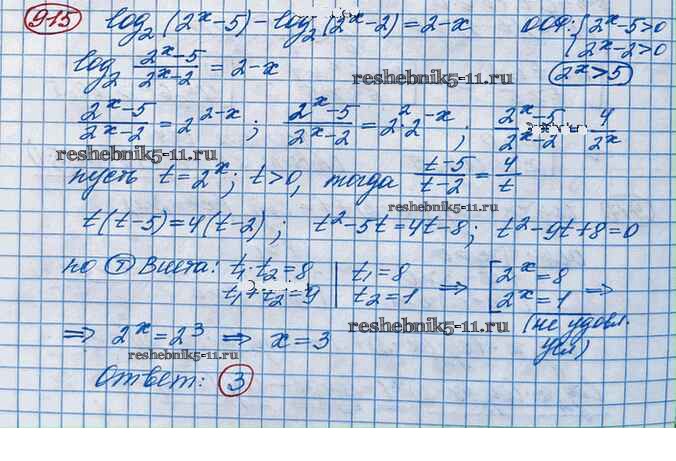 915 log₂(2ˣ-5)-log₂(2ˣ-2)=2-x ООФ: {2ˣ-5>0
2ˣ-2>0
log₂ (2ˣ-5)/(2ˣ-2) = 2-x (2ˣ>5)
reshebnik5-11.ru
(2ˣ-5)/(2ˣ-2) = 2²⁻ˣ; (2ˣ-5)/(2ˣ-2) = 2²·2⁻ˣ; (2ˣ-5)/(2ˣ-2) 4/2ˣ
reshebnik5-11.ru
пусть t=2ˣ; t>0, тогда (t-5)/(t-2) = 4/t
reshebnik5-11.ru
t(t-5)=4(t-2); t²-5t=4t-8; t²-9t+8=0
по Т Виета: t₁·t₂=8 | t₁=8 ⇒ [2ˣ=8
t₁+t₂=9 | t₂=1 2ˣ=1 ⇒
(не удовл.
усл)
reshebnik5-11.ru
⇒ 2ˣ=2³ ⇒ x=3
reshebnik5-11.ru
Ответ: 3